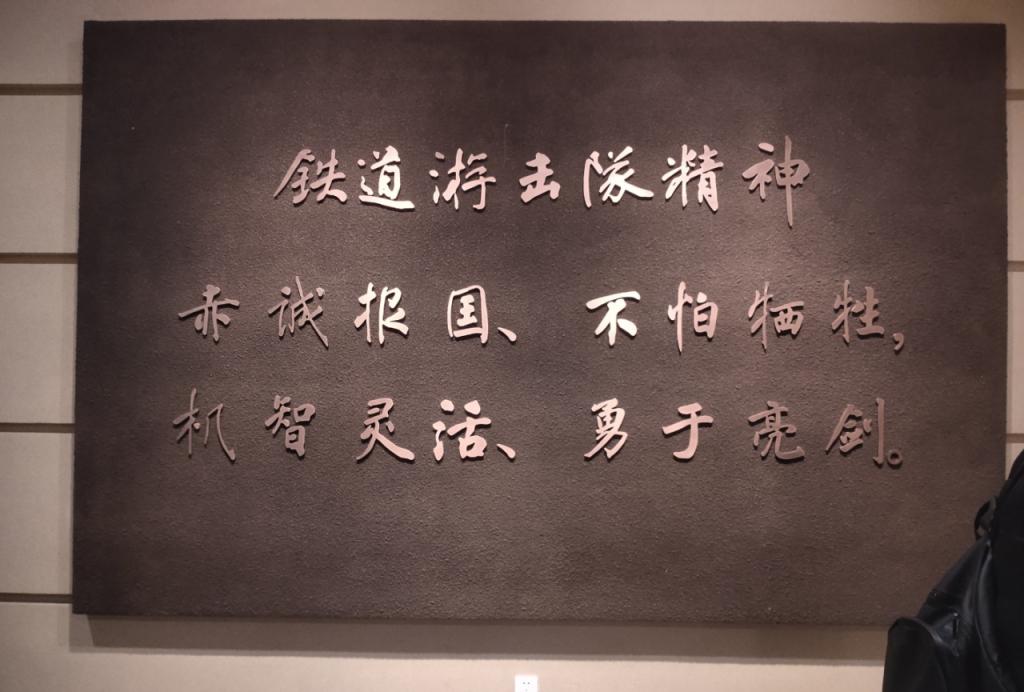 鉄道游击隊精神
赤诚报国、不怕牺牲，
机智灵活、勇于亮剑。